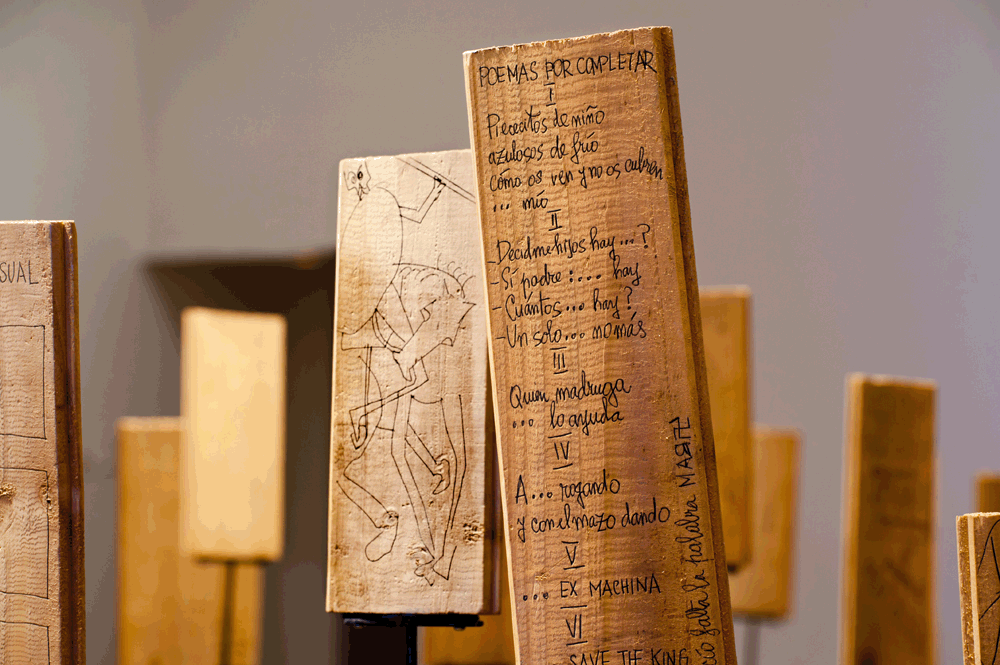 SUAL
POEMAS POR COMPLETAR
I
Piececitos de niño
azulosos de frío
cómo os ven y no os cubren
... mío
II
-Decidme hijos hay ...?
-Sí padre: ... hay
-Cuántos ... hay?
-Un solo ... no más
III
Quien madruga
... lo ayuda
IV
A ... rogando
y con el mazo dando
V
... EX MACHINA
VI
SAVE THE KING
falta la palabra